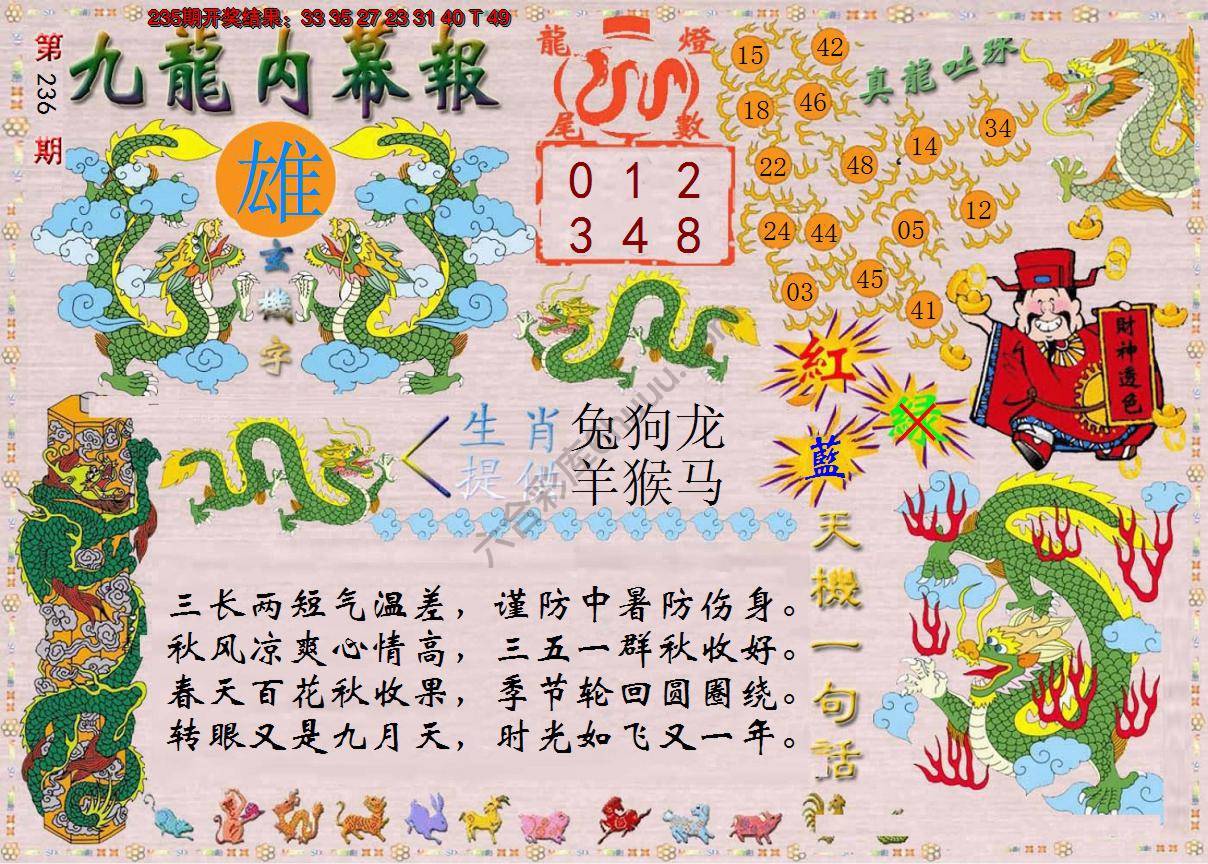 235期开奖结果：33 35 27 23 31 40 T 49
第
236
期
九龍内幕報
雄
玄
機
字
龍 燈
尾 數
0 1 2
3 4 8
真龍吐珠
15 42
18 46
14 34
22 48
12
24 44 05
45
03
41
財神透色
紅
綠
藍
生肖
兔狗龙
提供
羊猴马
天機一句話
三长两短气温差，谨防中暑防伤身。
秋风凉爽心情高，三五一群秋收好。
春天百花秋收果，季节轮回圆圈绕。
转眼又是九月天，时光如飞又一年。